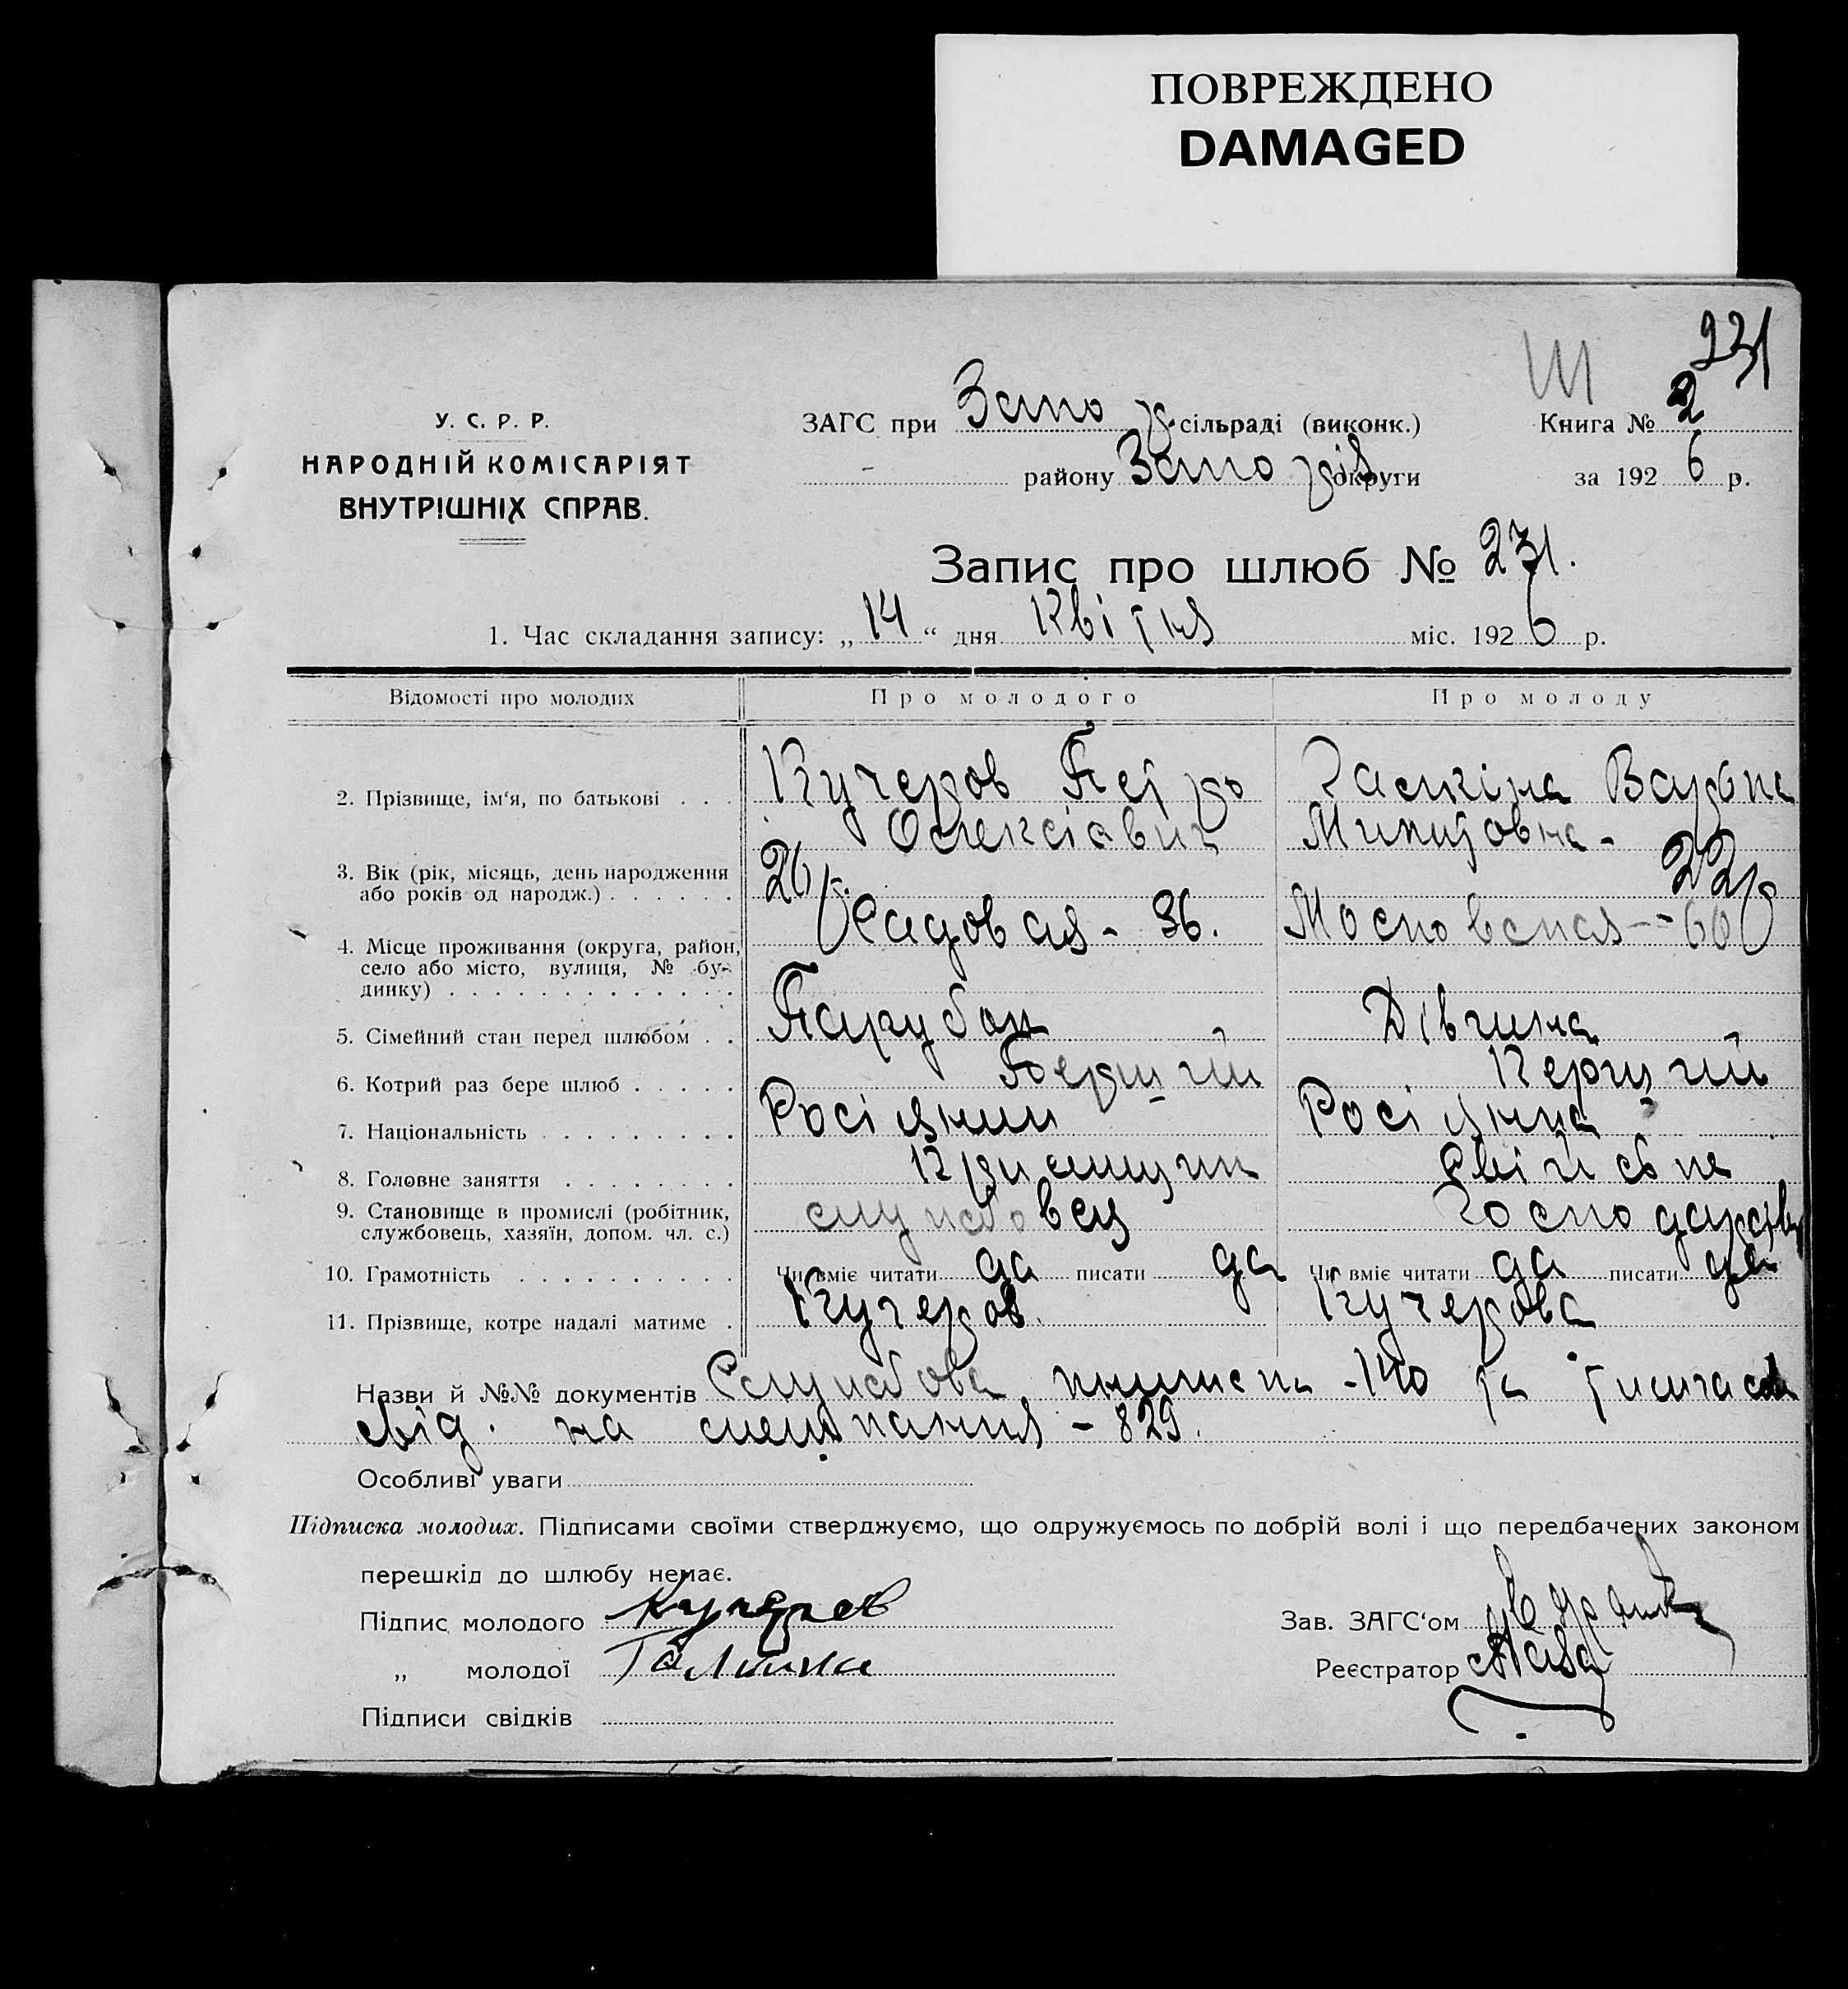 ПОВРЕЖДЕНО
DAMAGED
231
Ш
У. С. Р. Р.
НАРОДНІЙ КОМІСАРІЯТ
ВНУТРІШНІХ СПРАВ.
ЗАГС при Запо сільраді (виконк.) Книга № 2
- району Запо округи за 1926 р.
Запис про шлюб № 231.
1. Час складання запису: „14“ дня Квітня міс. 1926 р.
Відомості про молодих Про молодого Про молоду
2. Прізвище, ім‘я, по батькові . . . Кучеров Петро Варвка
Олексіавич Микитовна -
3. Вік (рік, місяць, день народження 26 22
або років од народж.) . . . . . .
4. Місце проживання (округа, район, Садовая - 36. Московская - 60
село або місто, вулиця, № бу-
динку) . . . . . . . . . . . . .
5. Сімейний стан перед шлюбом . . Парубок Дівчина
6. Котрий раз бере шлюб . . . . . Перщий Перщий
7. Національність . . . . . . . . . Росіянин Росіянка
8. Головне заняття . . . . . . . . свійське
9. Становище в промислі (робітник, службовец господарств
службовець, хазяїн, допом. чл. с.)
10. Грамотність . . . . . . . . . . Чи вміє читати да писати да Чи вміє читати да писати да
11. Прізвище, котре надалі матиме . Кучеров. Кучерова
Назви й №№ документів Службова книжка - 140 та
свід. на - 829.
Особливі уваги
Підписка молодих. Підписами своїми стверджуємо, що одружуємось по добрій волі і що передбачених законом
перешкід до шлюбу немає.
Підпис молодого Кучеров Зав. ЗАГС‘ом
„ молодої Реєстратор
Підписи свідків